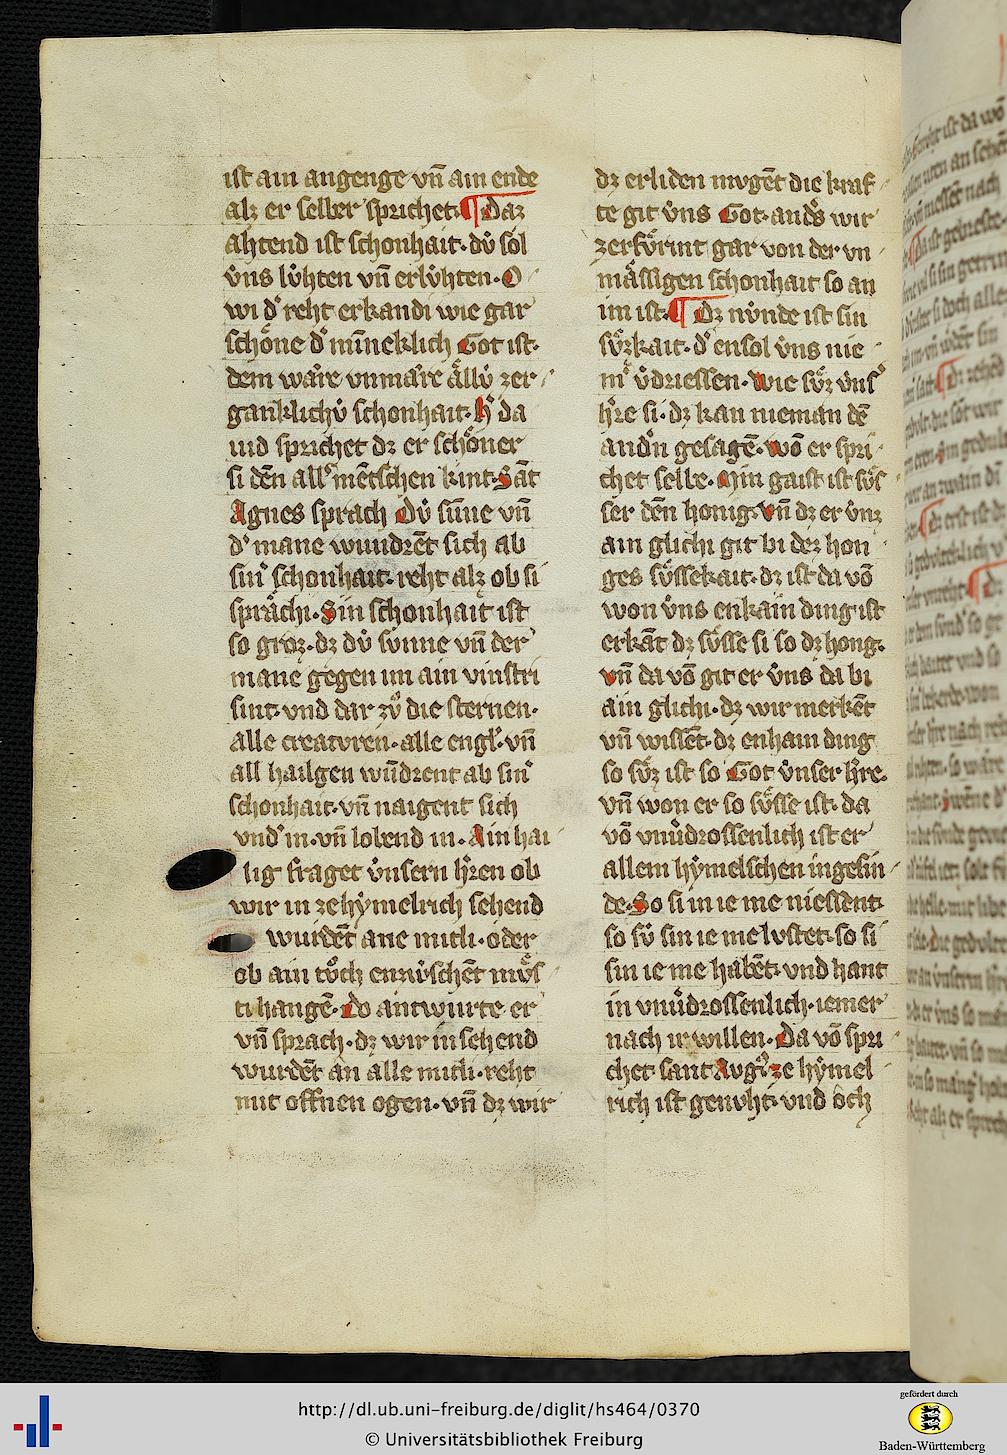 ist ain angenge vn̄ ain ende
alz er selber sprichet· ¶ Daz
ahtend ist schonhait· dv̍ sol
v̍ns lv̍hten vn̄ erlv̍hten· O
wi d͛ reht erkandi wie gar
schoͤne d͛ mīneklich Got ist·
dem waͤre vnmaͤre aͤllv̍ zer
ganklichv̍ schonhait· H͛ da
uid sprichet dz er schoͤner
si dēn all͛ mētschen kint· Sāt
Agnes sprach Dv̍ sūne vn̄
d͛ mane wundrēt sich ab
sin͛ schonhait· reht alz ob si
spraͤchi· Sin schonhait ist
so groz· dz dv̍ svnne vn̄ der
mane gegen im ain vinstri
sint· vnd dar zvͦ die sternen·
alle creatvren· alle engl͛· vn̄
all hailgen wūdrent ab sin͛
schonhait· vn̄ naigent sich
vnd͛ in· vn̄ lobend in· Ain hai
lig fraget v̍nsern h͛ren ob
wir in ze hẏmelrich sehend
wurdēt ane mitli· oder
ob ain tvͦch enzwv̍schēt mvͤs
ti hangē· Do antwurte er
vn̄ sprach· dz wir in sehend
wurdēt an alle mitli· reht
mit offnen ogen· vn̄ dz wir
dz erliden mvgēt die kraf
te git v̍ns Got· and͛s wir
zerfvͤrint gar von der vn
maͤssigen schonhait so an
im ist· ¶ Dz nv̍nde ist sin
svͤzkait· d͛ ensol v̍ns nie
m͛ v̍driessen· Wie svͤz v̍nſ͛
h͛re si· dz kan nieman dē
and͛n gesagē· wō er spri
chet selbe· Min gaist ist svͤs
ser dēn honig· Vn̄ dz er v̍nz
ain glichi git bi dez hon
ges svͤssekait· dz ist da vō
won v̍ns enkain ding ist
erkāt dz svͤsse si so dz hong·
vn̄ da vō git er v̍ns da bi
ain glichi· dz wir merkēt
vn̄ wissēt· dz enhain ding
so svͤz ist so Got v̍nser h͛re·
vn̄ won er so svͤsse ist· da
vō vnv̍drossenlich ist er
allem hẏmelschen ingesin
de· So si in ie me niessent·
so sv̍ sin ie me lvstet· so si
sin ie me habēt· vnd hant
in vnv̍drossenlich· iemer
nach ir willen· Da vō spri
chet sant Avg͛· ze hẏmel
rich ist genvht· vnd och
http://dl.ub.uni-freiburg.de/diglit/hs464/0370
© Universitätsbibliothek Freiburg
gefördert durch
Baden-Württemberg